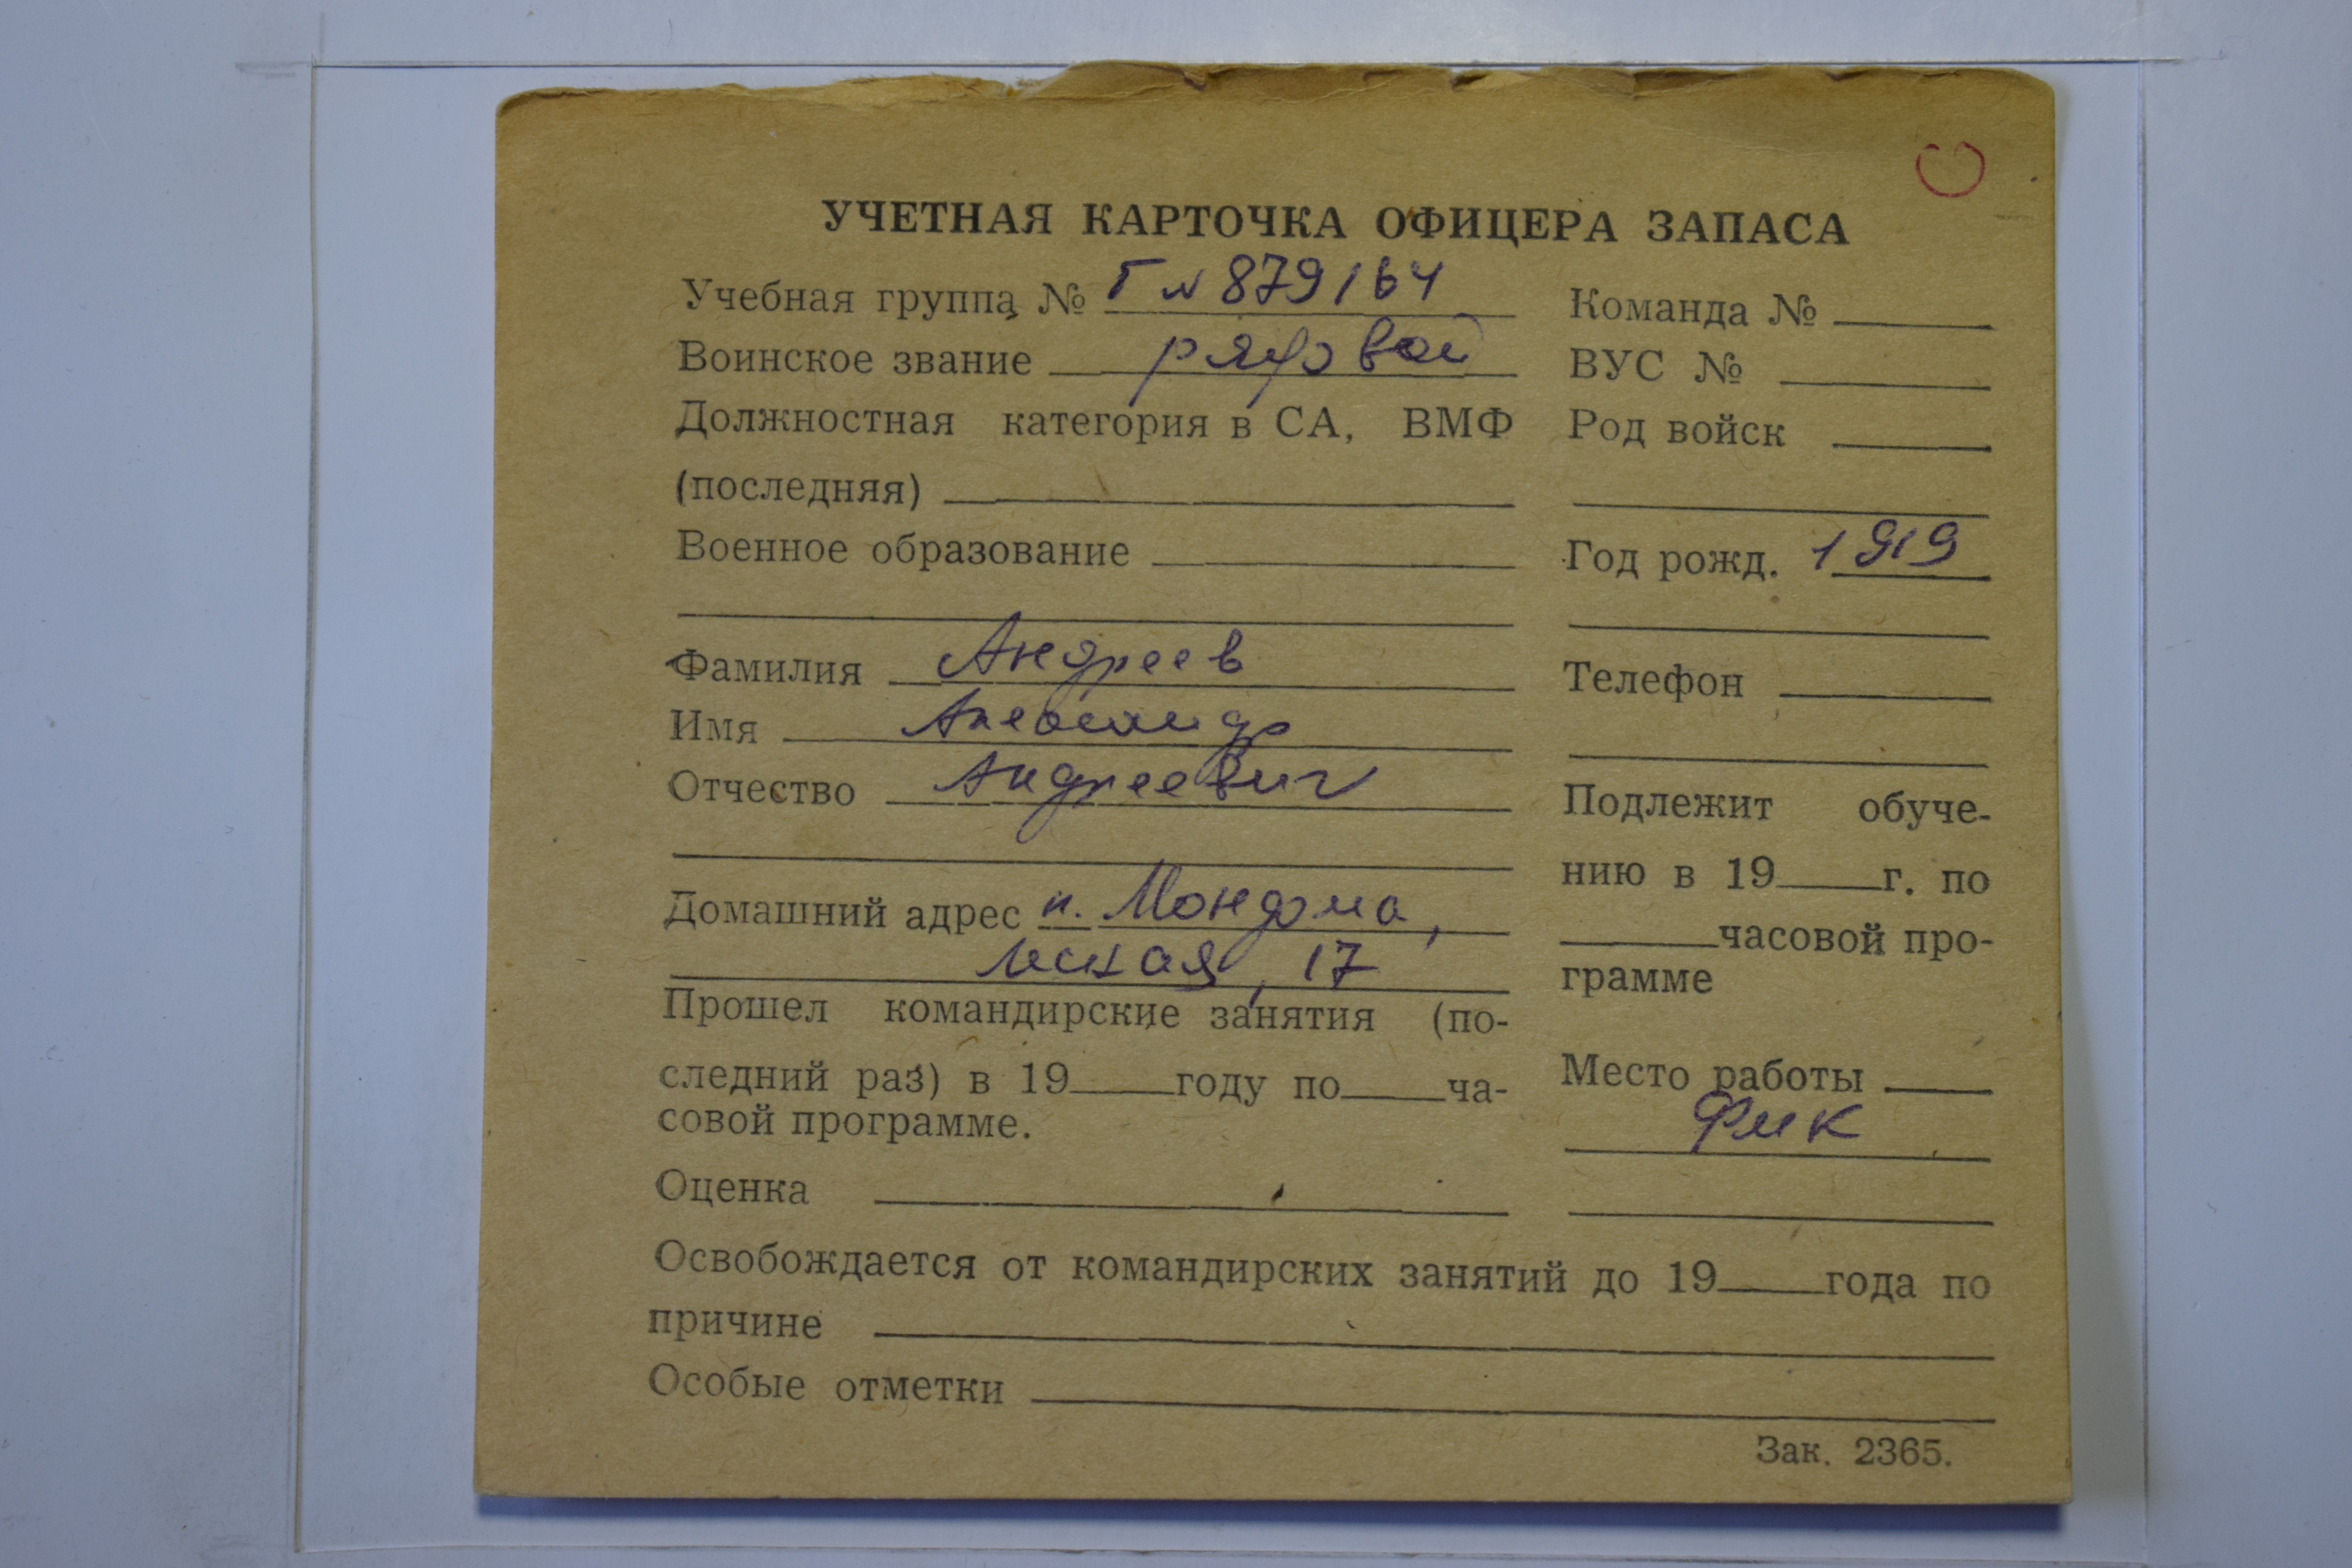 УЧЕТНАЯ КАРТОЧКА ОФИЦЕРА ЗАПАСА
Учебная группа № Г № 879164
Воинское звание рядовой
Должностная категория в СА, ВМФ
(последняя)
Военное образование
Фамилия Андреев
Имя Александр
Отчество Андреевич
Домашний адрес п. Мондома,
17
Прошел командирские занятия (по-
следний раз) в 19 году по ча-
совой программе.
Оценка
Команда №
ВУС №
Род войск
Год рожд. 1919
Телефон
Подлежит обуче-
нию в 19 г. по
часовой про-
грамме
Место работы
ФМК
Освобождается от командирских занятий до 19 года по
причине
Особые отметки
Зак. 2365.